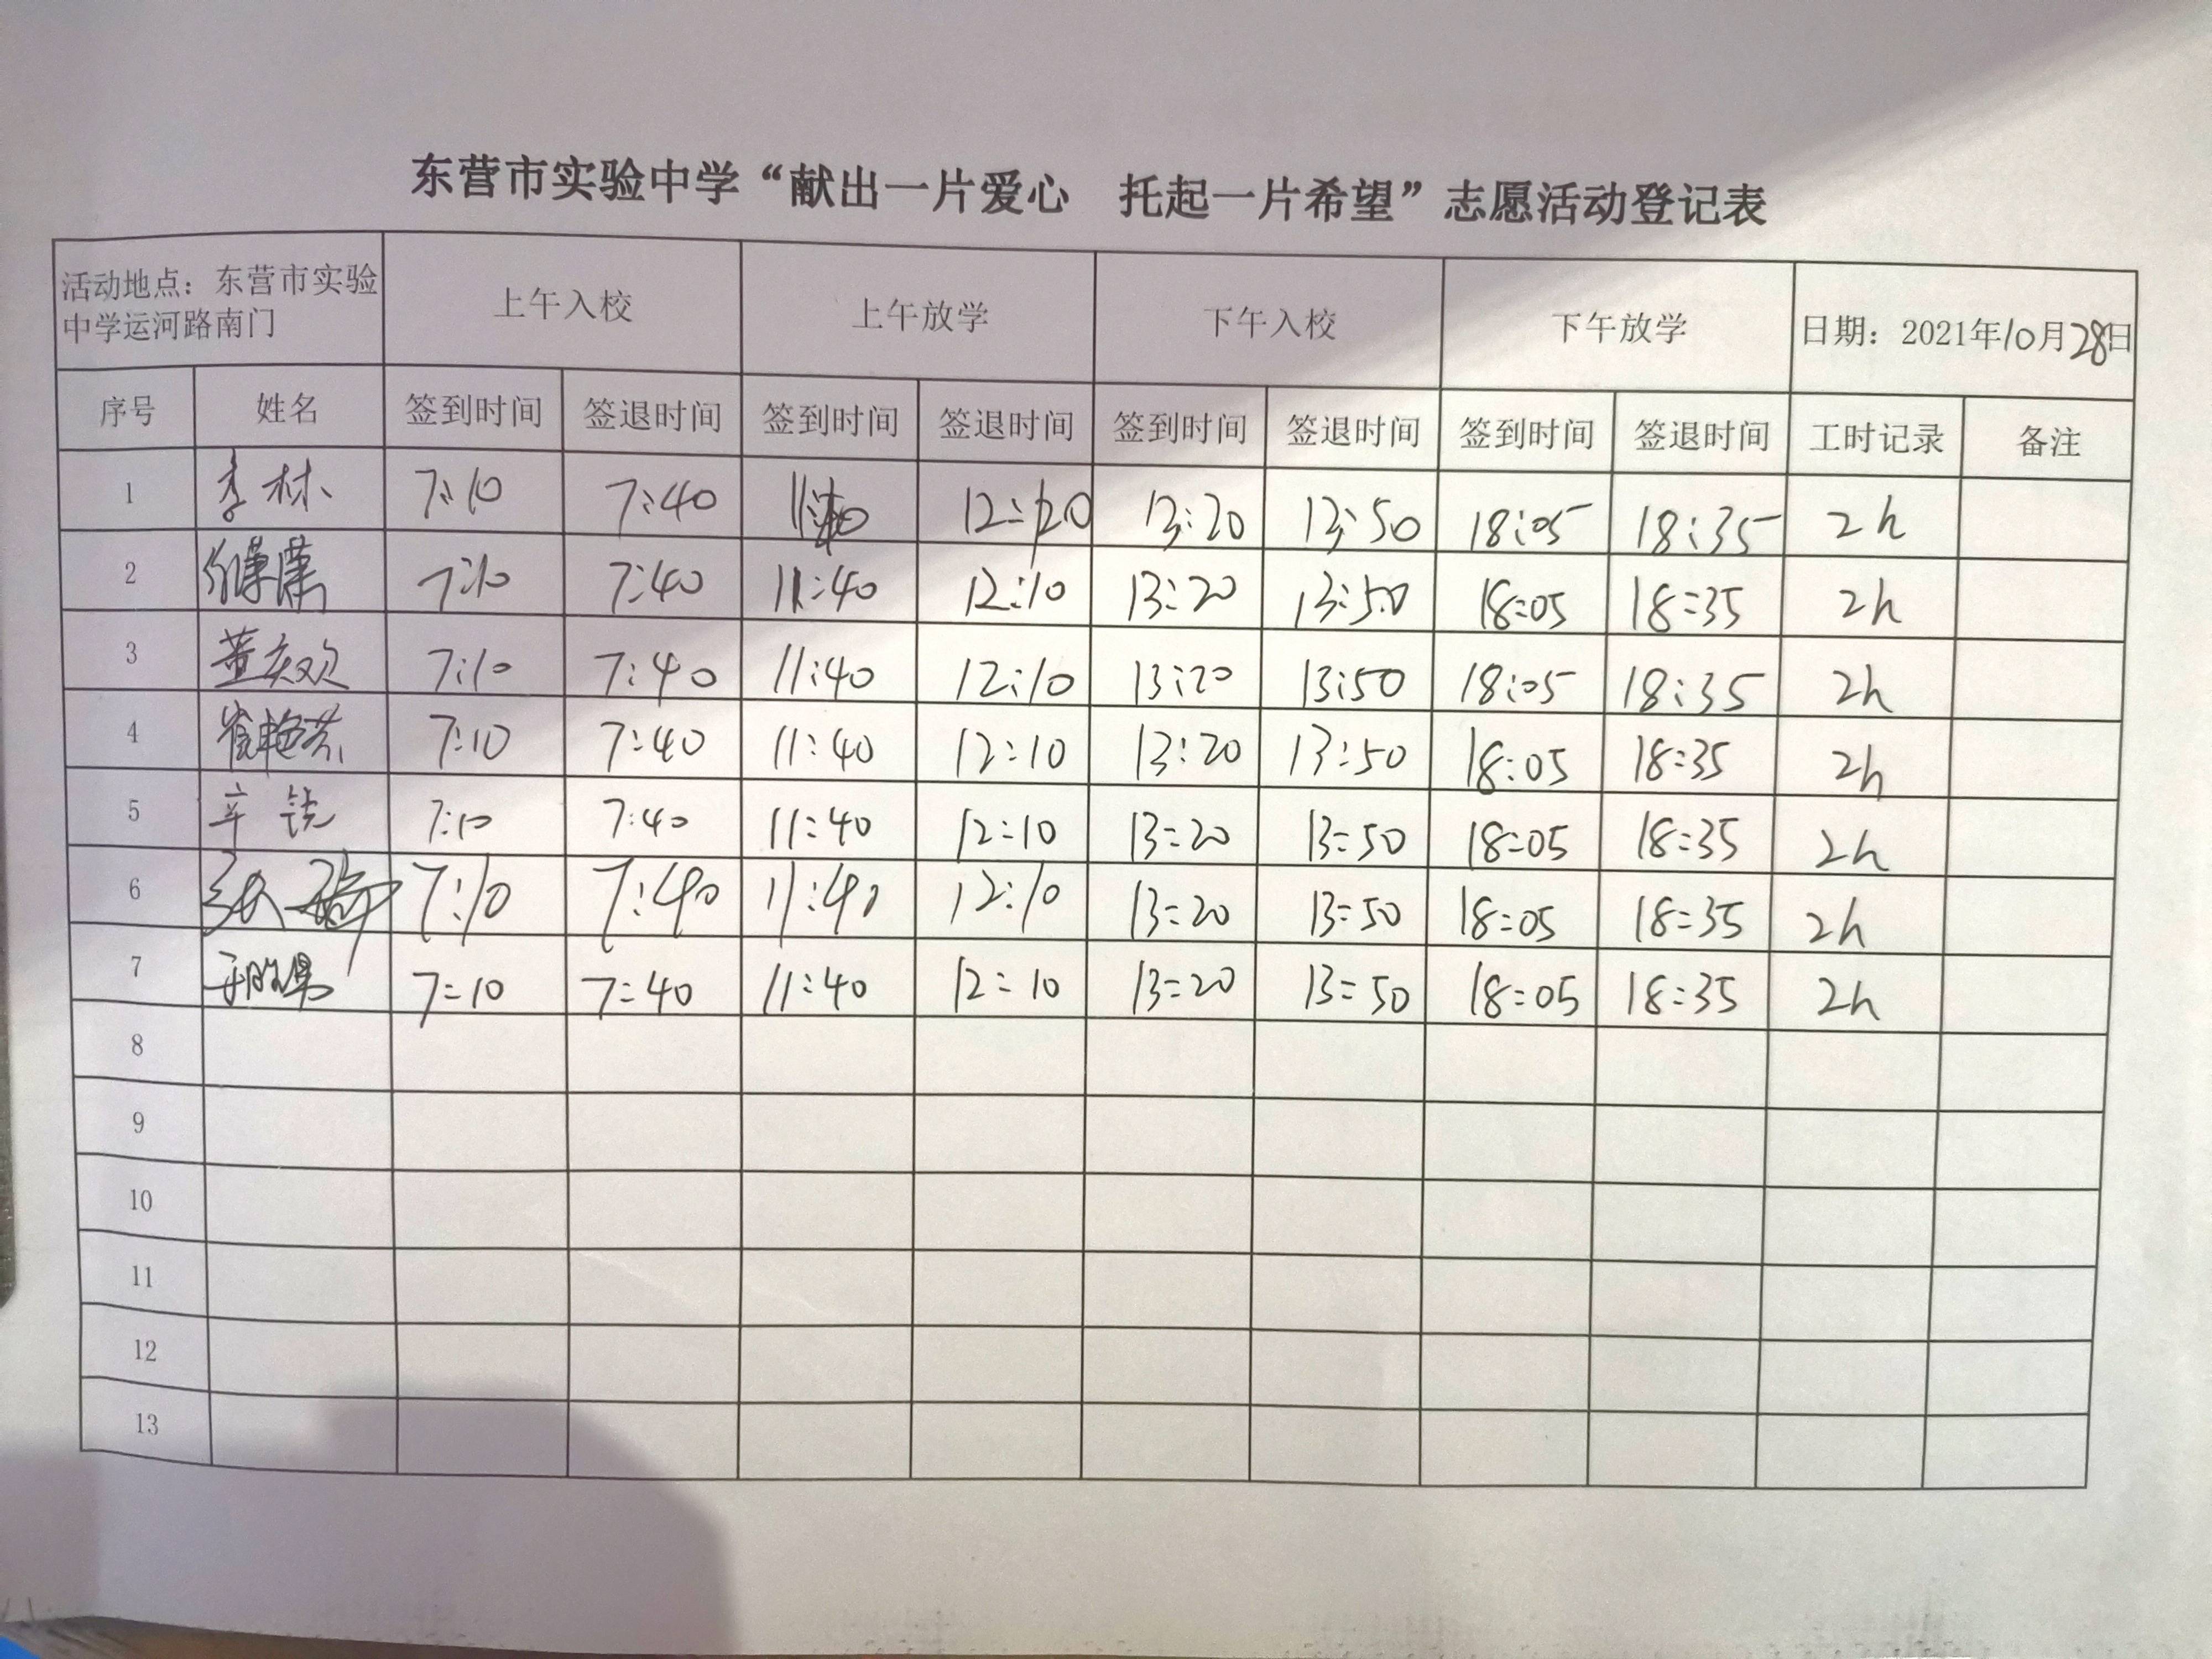 东营市实验中学“献出一片爱心　托起一片希望”志愿活动登记表
活动地点：东营市实验
中学运河路南门
上午入校 上午放学 下午入校 下午放学 日期：2021年10月28日
序号 姓名 签到时间 签退时间 签到时间 签退时间 签到时间 签退时间 签到时间 签退时间 工时记录 备注
1 李林 7:10 7:40 12:10 13:20 13:50 18:05 18:35 2h
2 7:10 7:40 11:40 12:10 13:20 13:50 18:05 18:35 2h
3 董庆欢 7:10 7:40 11:40 12:10 13:20 13:50 18:05 18:35 2h
4 崔艳芬 7:10 7:40 11:40 12:10 13:20 13:50 18:05 18:35 2h
5 辛锐 7:10 7:40 11:40 12:10 13:20 13:50 18:05 18:35 2h
6 7:10 7:40 11:40 12:10 13:20 13:50 18:05 18:35 2h
7 7:10 7:40 11:40 12:10 13:20 13:50 18:05 18:35 2h
8
9
10
11
12
13